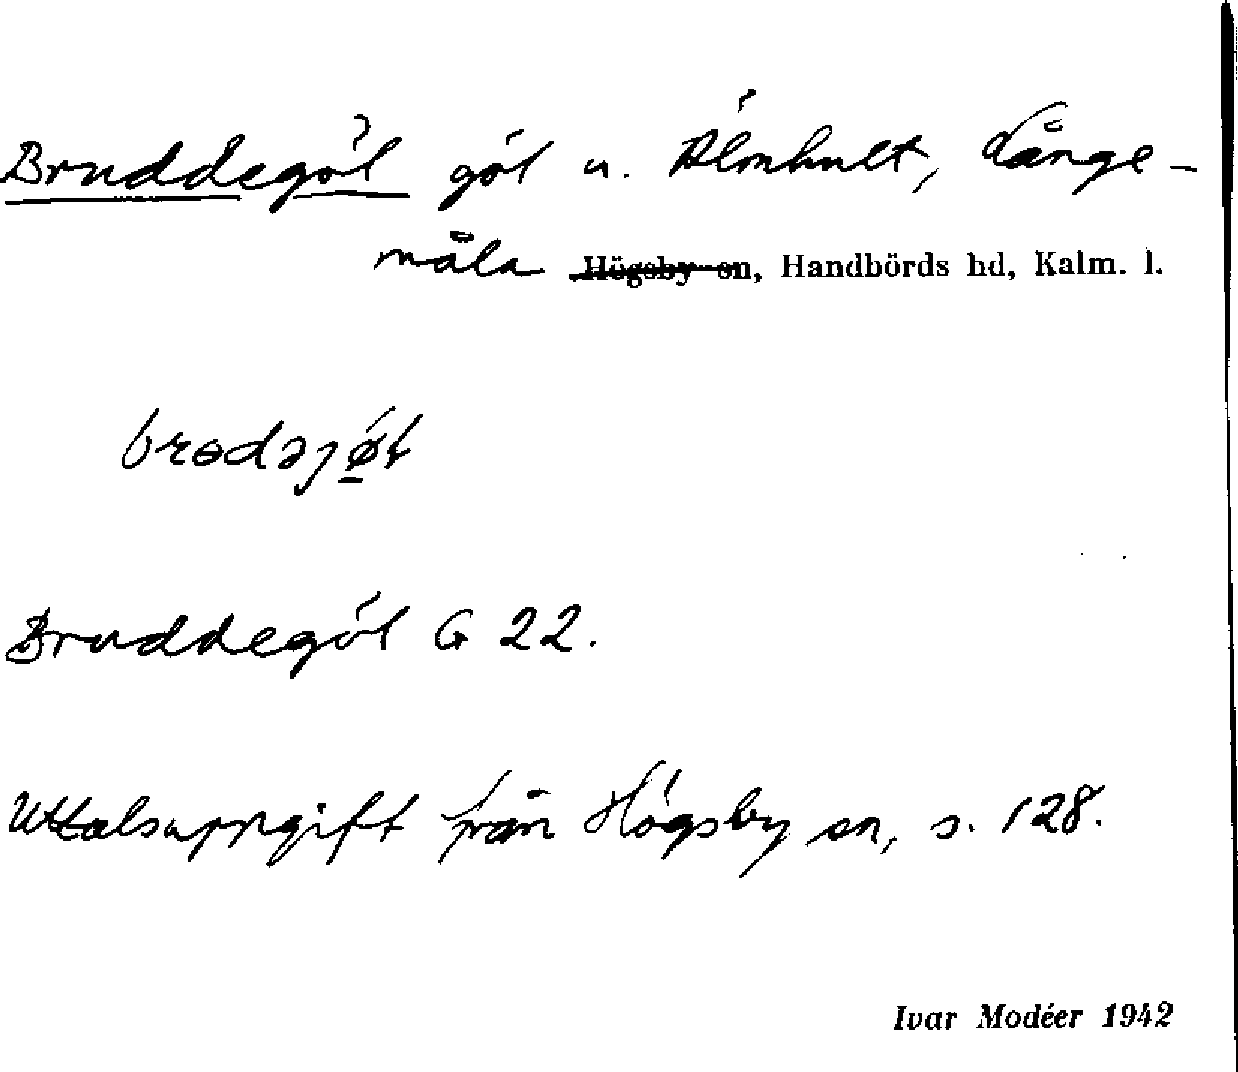 Bruddegöl göl u. Älmhult, Långe-
måla Högsby sn, Handbörds hd, Kalm. l.
Bruddegöl G 22.
Uttalsuppgift från Högsby sn, s. 128.
Ivar Modéer 1942